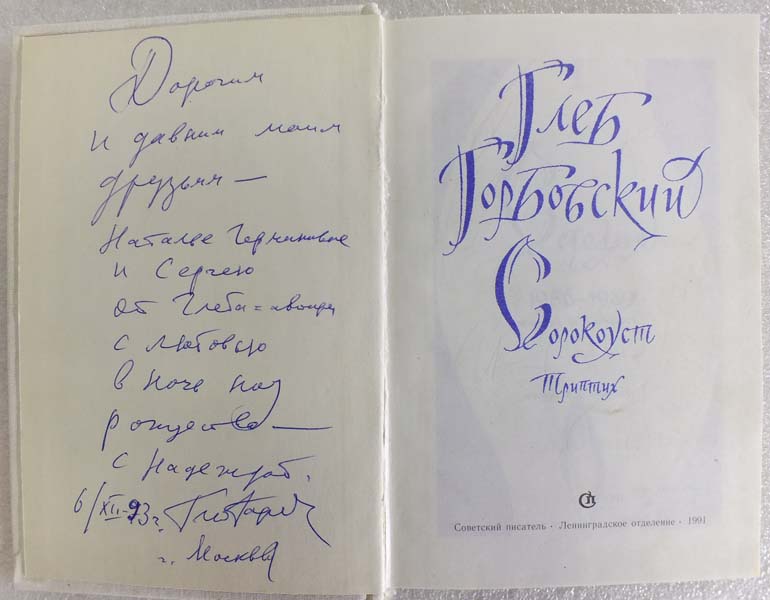 Дорогим
и давним моим
друзьям —
Наталье
и Сергею
от Глеба =
с любовью
в ночь под
рождество —
с надеждой.
6/XII-93 г.
г. Москва
Глеб
Горбовский
Сорокоуст
Триптих
Советский писатель · Ленинградское отделение · 1991